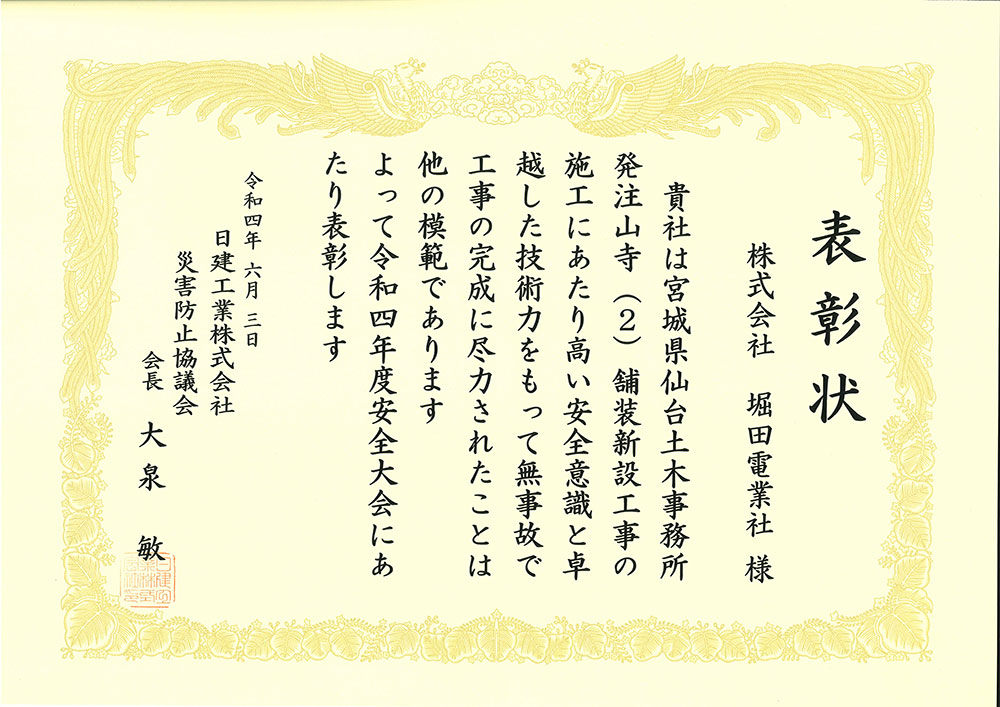 表彰状
株式会社 堀田電業社 様
貴社は宮城県仙台土木事務所
発注山寺（２）舗装新設工事の
施工にあたり高い安全意識と卓
越した技術力をもって無事故で
工事の完成に尽力されたことは
他の模範であります
よって令和四年度安全大会にあ
たり表彰します
令和四年 六月 三日
日建工業株式会社
災害防止協議会
会長 大泉 敏